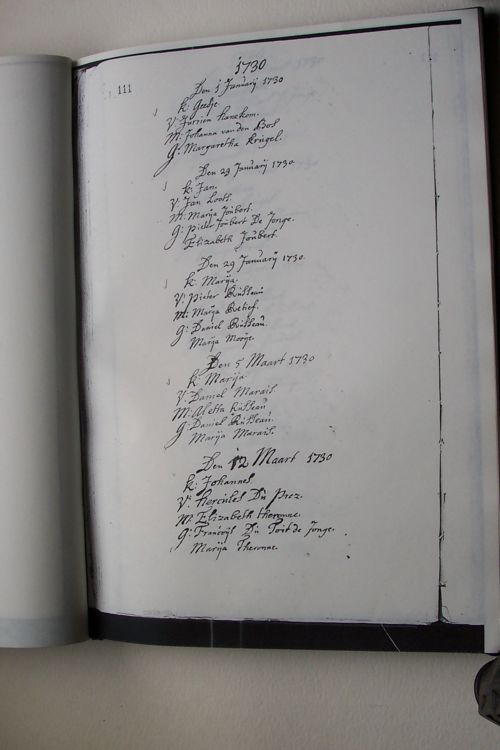 1730
111
Den 1 Januarij 1730
K: Geesje.
V: Jurrien Hanekom.
M: Johanna van den Bos
G: Margaretha Krugel.
Den 29 Januarij 1730.
K: Jan.
V: Jan Loots.
M: Marija Joubert.
G: Pieter Joubert De Jonge.
Elizabeth Joubert.
Den 29 Januarij 1730.
K: Marija.
V: Pieter Rousseau
M: Marija Retief.
G: Daniel Rousseau.
Marija Mooije.
Den 5 Maart 1730
K: Marija.
V: Daniel Marais.
M: Aletta Rousseau
G: Daniel Rousseau.
Marija Marais.
Den 12 Maart 1730
K: Johannes
V: Hercules Du Prez.
M: Elizabeth Theronne.
G: Francoijs Du Toit de Jonge.
Marija Theronne.